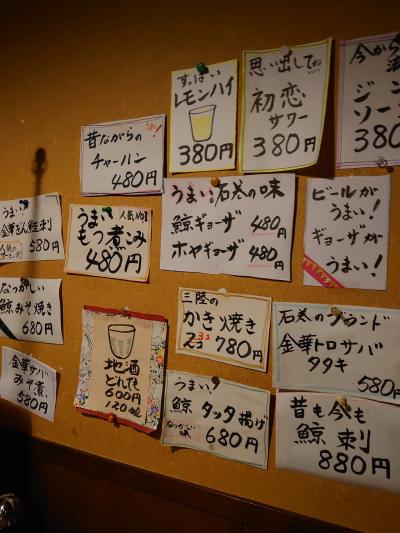 すっぱい
レモンハイ
380円
思い出してね
初恋
サワー
380円
今から
ジン
ソー
380
昔ながらの
チャーハン
480円
うまい!石巻の味
鯨ギョーザ 480円
ホヤギョーザ 480円
ビールが
うまい!
ギョーザが
うまい!
うまい!
580円
うまい 人気No1
もつ煮こみ
480円
なつかしい
鯨みそ焼き
680円
地酒
どれでも
600円
120ml
三陸の
かき焼き
780円
石巻のブランド
金華トロサバ
タタキ
580円
金華サバ
みそ煮
580円
うまい!
鯨タッタ揚げ
なつかしい
味
680円
昔も今も
鯨刺
880円